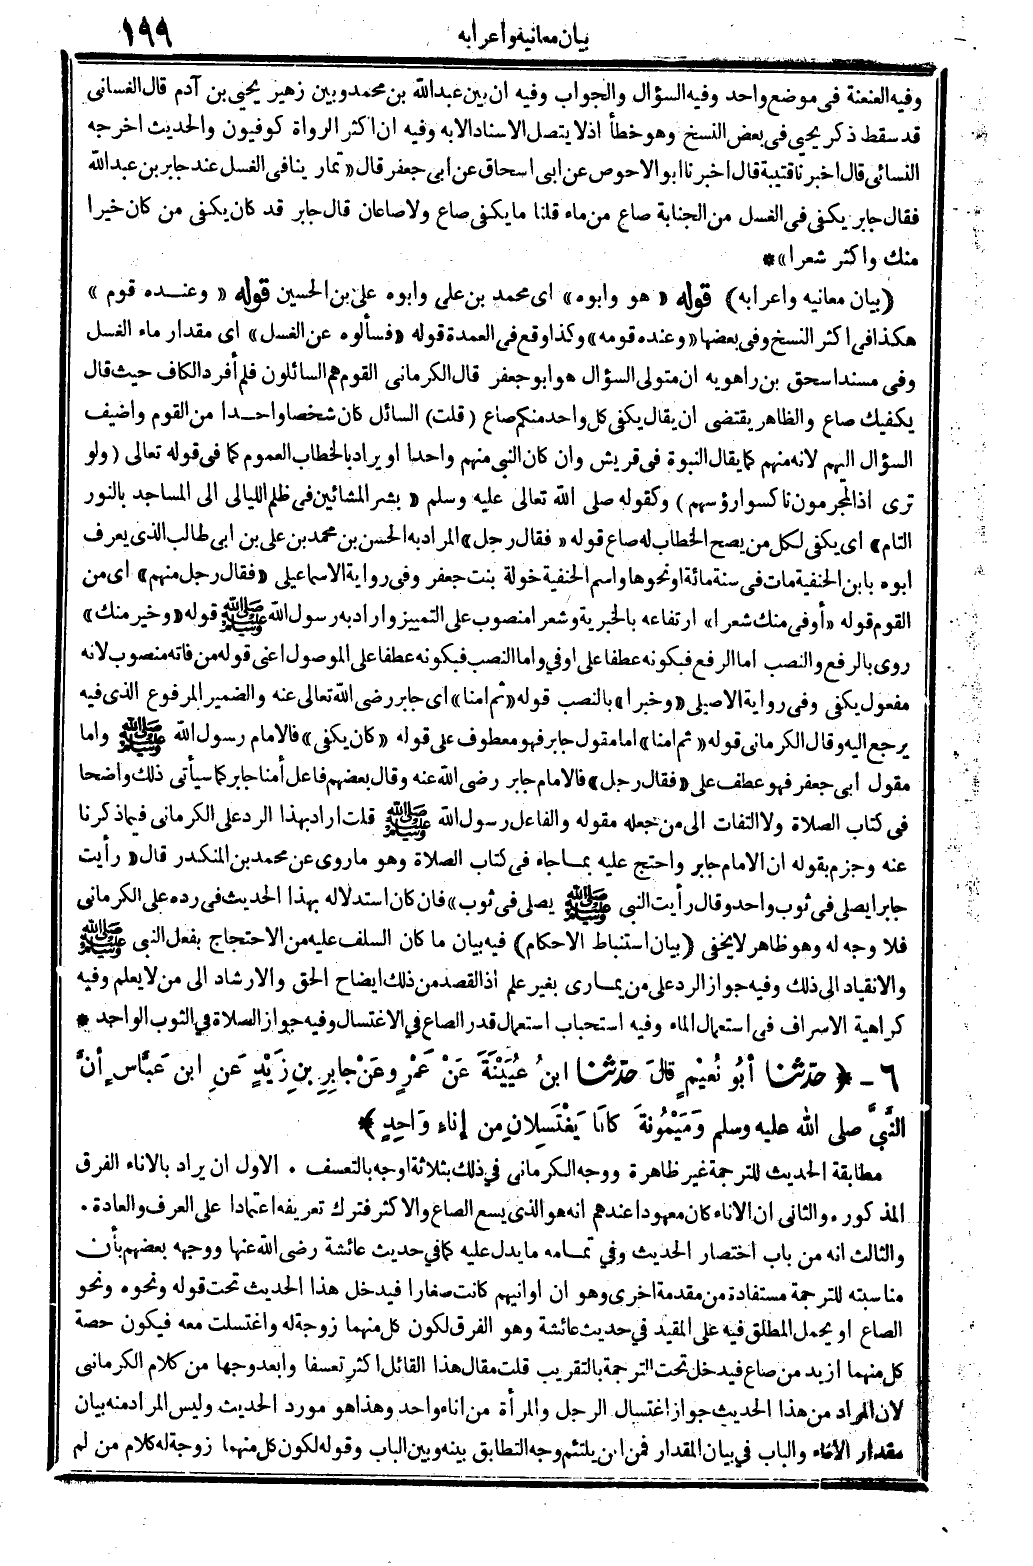 بيان معانيه واعرابه ١٩٩
وفيه العنعنة فى موضع واحد وفيه السؤال والجواب وفيه ان بين عبدالله بن محمد وبين زهير يحيى بن آدم قال الغسانى
قد سقط ذكر يحيى فى بعض النسخ وهو خطأ اذ لا يتصل الاسناد الا به وفيه ان اكثر الرواة كوفيون والحديث اخرجه
النسائى قال اخبرنا قتيبة قال اخبرنا أبو الاحوص عن ابى اسحاق عن ابى جعفر قال « تمارينا فى الغسل عند جابر بن عبد الله
فقال جابر يكفى فى الغسل من الجنابة صاع من ماء قلنا ما يكفى صاع ولا صاعان قال جابر قد كان يكفى من كان خيرا
منك واكثر شعرا » *
(بيان معانيه واعرابه) قوله « هو وابوه » اى محمد بن على وابوه على بن الحسين قوله « وعنده قوم »
هكذا فى اكثر النسخ وفى بعضها « وعنده قومه » وكذا وقع فى العمدة قوله « فسألوه عن الغسل » اى مقدار ماء الغسل
وفى مسند اسحق بن راهويه ان متولى السؤال هو ابو جعفر قال الكرمانى القوم هم السائلون فلم أفرد الكاف حيث قال
يكفيك صاع والظاهر يقتضى ان يقال يكفى كل واحد منكم صاع (قلت) السائل كان شخصا واحدا من القوم واضيف
السؤال اليهم لانه منهم كما يقال النبوة فى قريش وان كان النبى منهم واحدا او يراد بالخطاب العموم كما فى قوله تعالى (ولو
ترى اذ المجرمون ناكسوا رؤسهم) وكقوله صلى الله تعالى عليه وسلم « بشر المشائين فى ظلم الليالى الى المساجد بالنور
التام » اى يكفى لكل من يصح الخطاب له صاع قوله « فقال رجل » المراد به الحسن بن محمد بن على بن ابى طالب الذى يعرف
ابوه بابن الحنفية مات فى سنة مائة او نحوها واسم الحنفية خولة بنت جعفر وفى رواية الاسماعيلى « فقال رجل منهم » اى من
القوم قوله « أوفى منك شعرا » ارتفاعه بالخبرية وشعرا منصوب على التمييز واراد به رسول الله ﷺ قوله « وخير منك »
روى بالرفع والنصب اما الرفع فبكونه عطفا على اوفى واما النصب فبكونه عطفا على الموصول اعنى قوله من فانه منصوب لانه
مفعول يكفى وفى رواية الاصيلى « وخيرا » بالنصب قوله « ثم امنا » اى جابر رضى الله تعالى عنه والضمير المرفوع الذى فيه
يرجع اليه وقال الكرمانى قوله « ثم امنا » اما مقول جابر فهو معطوف على قوله « كان يكفى » فالامام رسول الله ﷺ واما
مقول ابى جعفر فهو عطف على « فقال رجل » فالامام جابر رضى الله عنه وقال بعضهم فاعل أمنا جابر كما سيأتى ذلك واضحا
فى كتاب الصلاة ولا التفات الى من جعله مقوله والفاعل رسول الله ﷺ قلت اراد بهذا الرد على الكرمانى فيما ذكرنا
عنه وجزم بقوله ان الامام جابر واحتج عليه بما جاء فى كتاب الصلاة وهو ما روى عن محمد بن المنكدر قال « رأيت
جابرا يصلى فى ثوب واحد وقال رأيت النبى ﷺ يصلى فى ثوب » فان كان استدلاله بهذا الحديث فى رده على الكرمانى
فلا وجه له وهو ظاهر لا يخفى (بيان استنباط الاحكام) فيه بيان ما كان السلف عليه من الاحتجاج بفعل النبى ﷺ
والانقياد الى ذلك وفيه جواز الرد على من يمارى بغير علم اذ القصد من ذلك ايضاح الحق والارشاد الى من لا يعلم وفيه
كراهية الاسراف فى استعمال الماء وفيه استحباب استعمال قدر الصاع فى الاغتسال وفيه جواز الصلاة فى الثوب الواحد *
٦ - ﴿ حدّثنا أبُو نُعَيْمٍ قالَ حدّثنا ابنُ عُيَيْنَةَ عَنْ عَمْرٍو عَنْ جابِرِ بنِ زَيْدٍ عَنِ ابنِ عَبَّاسٍ أنَّ
النَّبِيَّ صلى الله عليه وسلم وَمَيْمُونَةَ كانَا يَغْتَسِلانِ مِن إناءٍ وَاحِدٍ ﴾
مطابقة الحديث للترجمة غير ظاهرة ووجه الكرمانى فى ذلك بثلاثة اوجه بالتعسف . الاول ان يراد بالاناء الفرق
المذكور . والثانى ان الاناء كان معهودا عندهم انه هو الذى يسع الصاع والاكثر فترك تعريفه اعتمادا على العرف والعادة .
والثالث انه من باب اختصار الحديث وفى تمامه ما يدل عليه كما فى حديث عائشة رضى الله عنها ووجهه بعضهم بأن
مناسبته للترجمة مستفادة من مقدمة اخرى وهو ان اوانيهم كانت صغارا فيدخل هذا الحديث تحت قوله ونحوه ونحو
الصاع او يحمل المطلق فيه على المقيد فى حديث عائشة وهو الفرق لكون كل منهما زوجة له واغتسلت معه فيكون حصة
كل منهما ازيد من صاع فيدخل تحت الترجمة بالتقريب قلت مقال هذا القائل اكثر تعسفا وابعد وجها من كلام الكرمانى
لان المراد من هذا الحديث جواز اغتسال الرجل والمرأة من اناء واحد وهذا هو مورد الحديث وليس المراد منه بيان
مقدار الاناء والباب فى بيان المقدار فمن اين يلتئم وجه التطابق بينه وبين الباب وقوله لكون كل منهما زوجة له كلام من لم